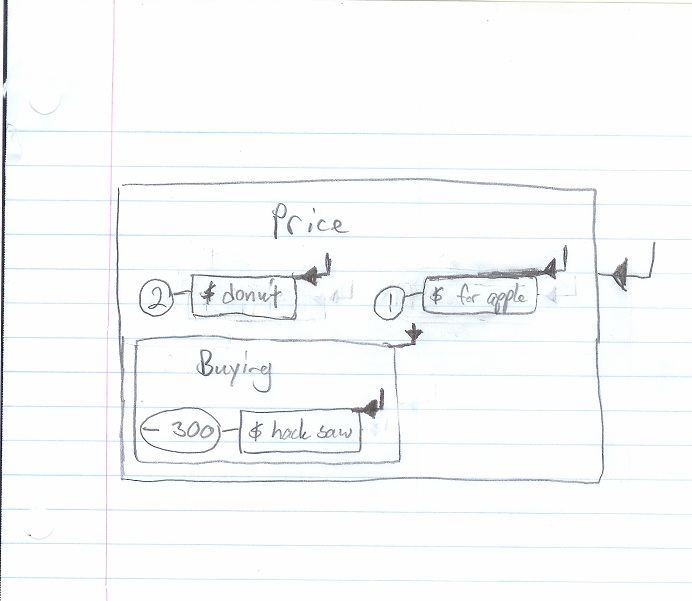 Price
2 $ donut 1 $ for apple
Buying
- 300 $ hack saw